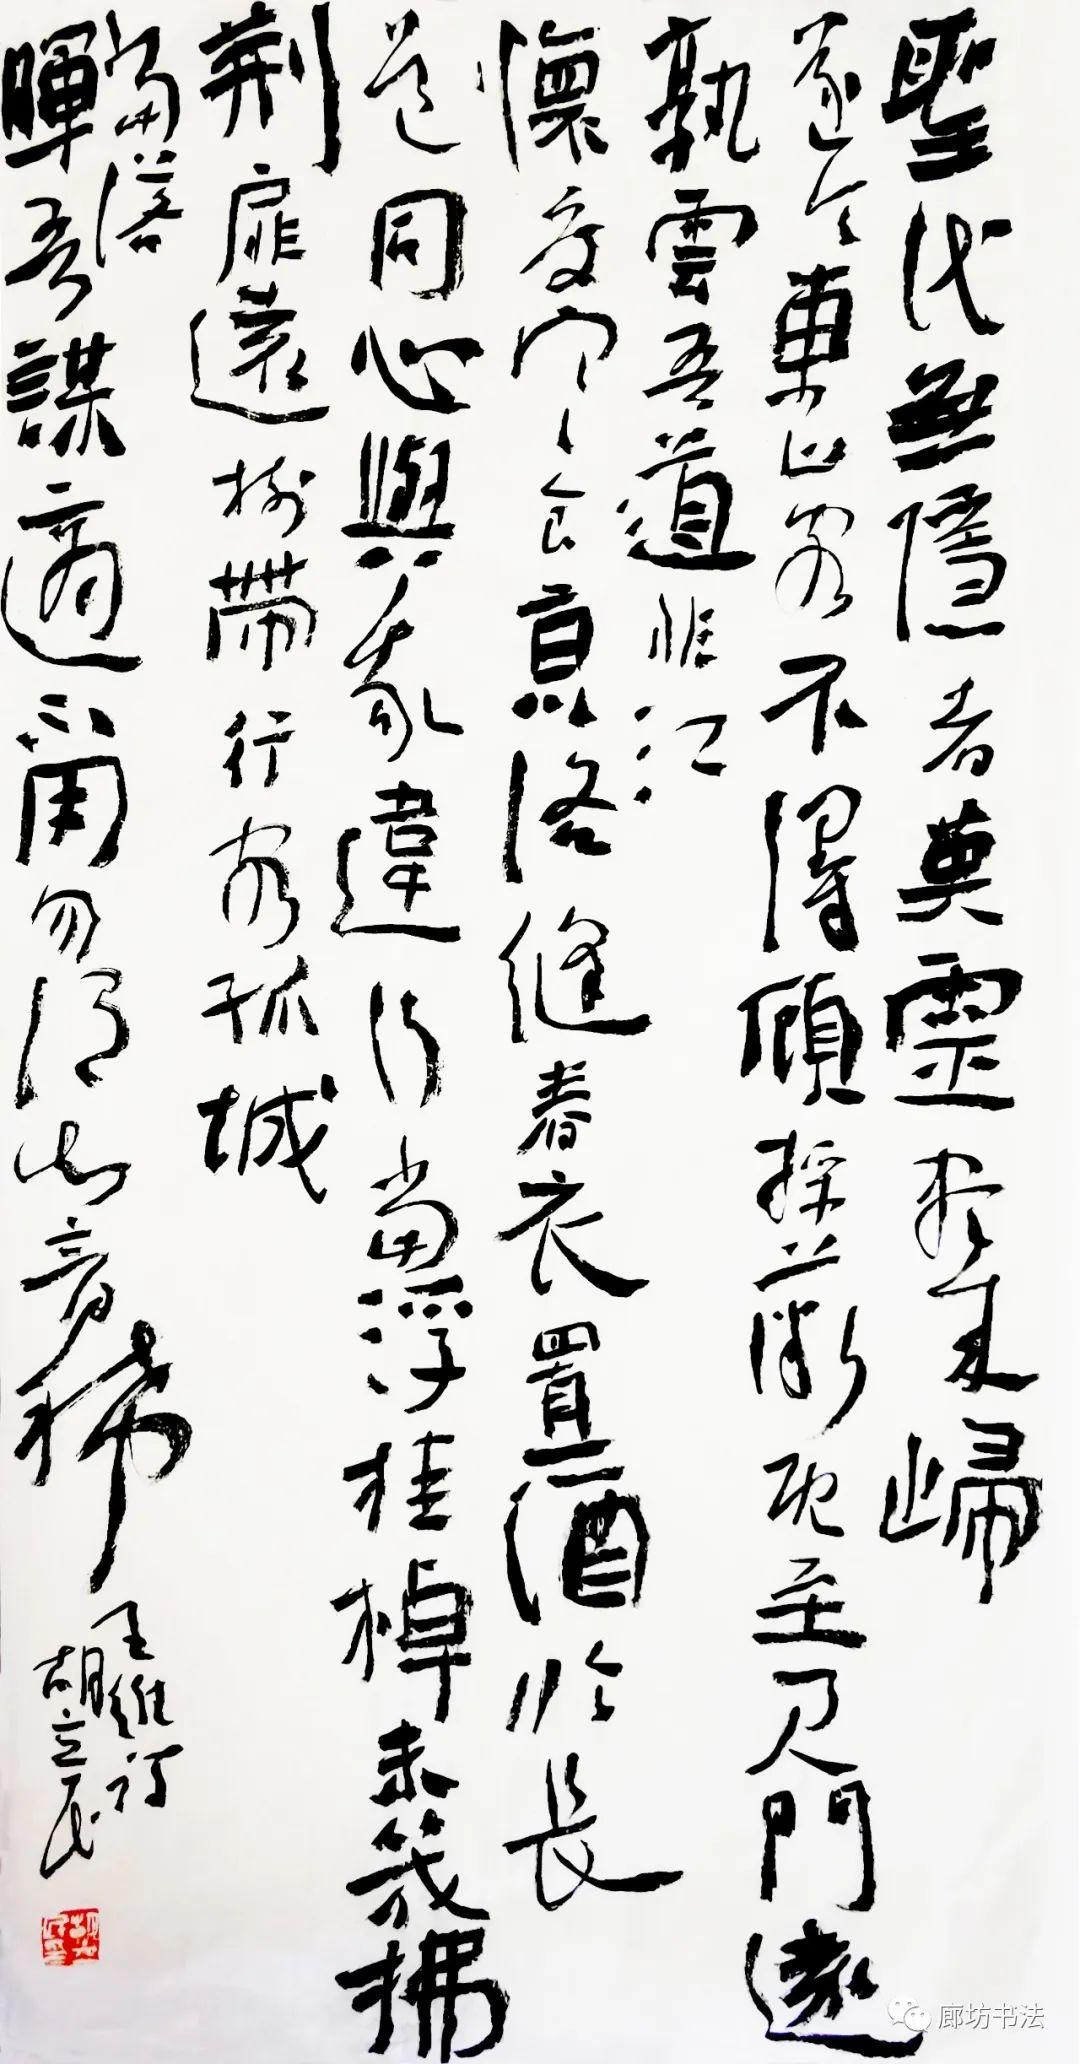 聖代無隱者英靈盡來歸
遂令東山客不得顧採薇既至君門遠
孰雲吾道非江
懷度寒食京洛縫春衣置酒臨長
道同心與我違行當浮桂棹未幾拂
荆扉遠樹帶行客孤城
當落
暉吾謀適不用勿謂知音稀
王維詩
胡立民
廊坊书法